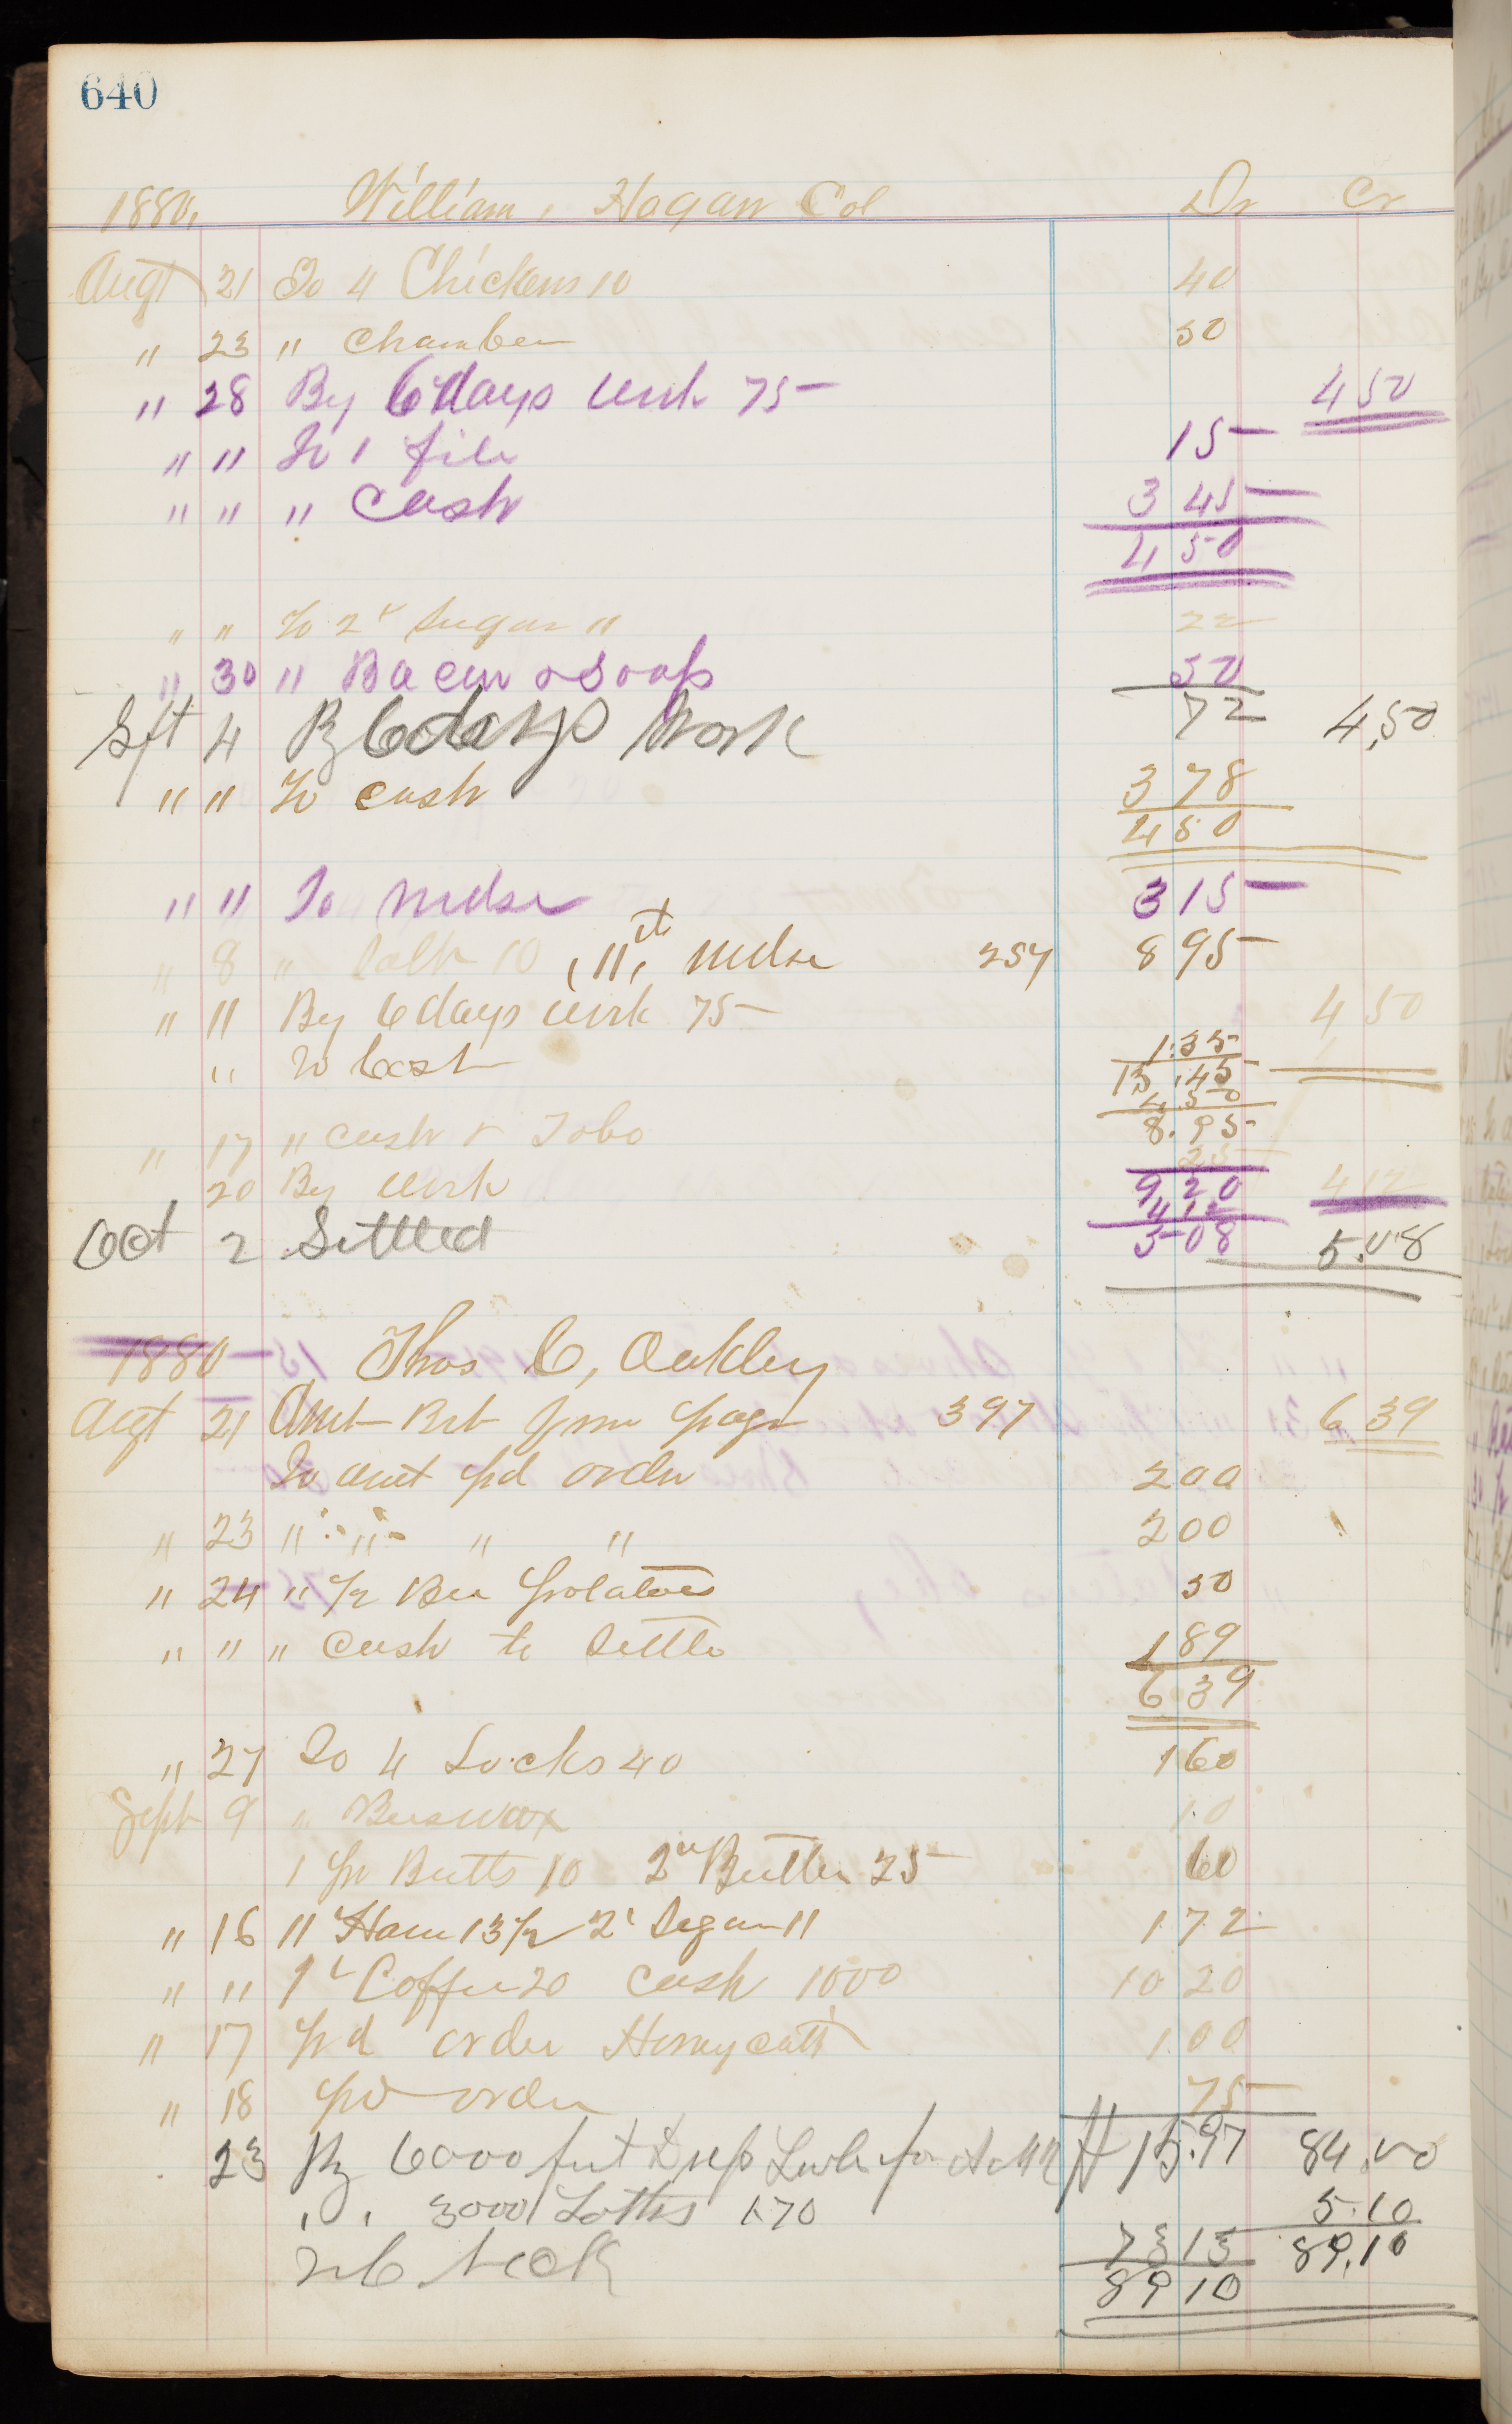 640
1880, William, Hogan Col Dr Cr
Augt 21 To 4 Chickens 10 40
" 23 " Chamber 50
" 28 By 6 days work 75 4 50
" " To 1 file 15
" " " Cash 3 45
4 50
" " To 2 Sugar 11 22
" 30 " Bacon & Soap 50
72
Sept 4 By 6 days Work 4,50
" " To cash 3 78
4 50
" " To Mdse 3 15
" 8 " 10 , 11, Mdse 257 8 95
" 11 By 6 days work 75 4 50
" To Cash 1.35
13.45
4.50
8.95
" 17 " cash & Tobo 25
20 By work 9 20 4 12
4 12
Oct 2 Settled 5 08 5.08
1880 Thos C, Oakley
Augt 21 Amt Brt from page 397 6 39
To amt pd order 2 00
" 23 " " " " 2 00
" 24 " 1/2 Bu Potatoes 50
" " " Cash to Settle 1 89
6 39
" 27 To 4 Locks 40 1 60
Sept 9 " Beeswax 10
1 pr Butts 10 2 Butter 25 60
" 16 " Ham 13 1/2 2 Sugar 11 1 72
" " 1 Coffee 20 cash 1000 10 20
" 17 pd order Honeycutt 1 00
" 18 pd order 75
23 By 6000 feet for # 15.97 84.00
" " 3000 Laths 1.70 5.10
73 13 89.10
89 10